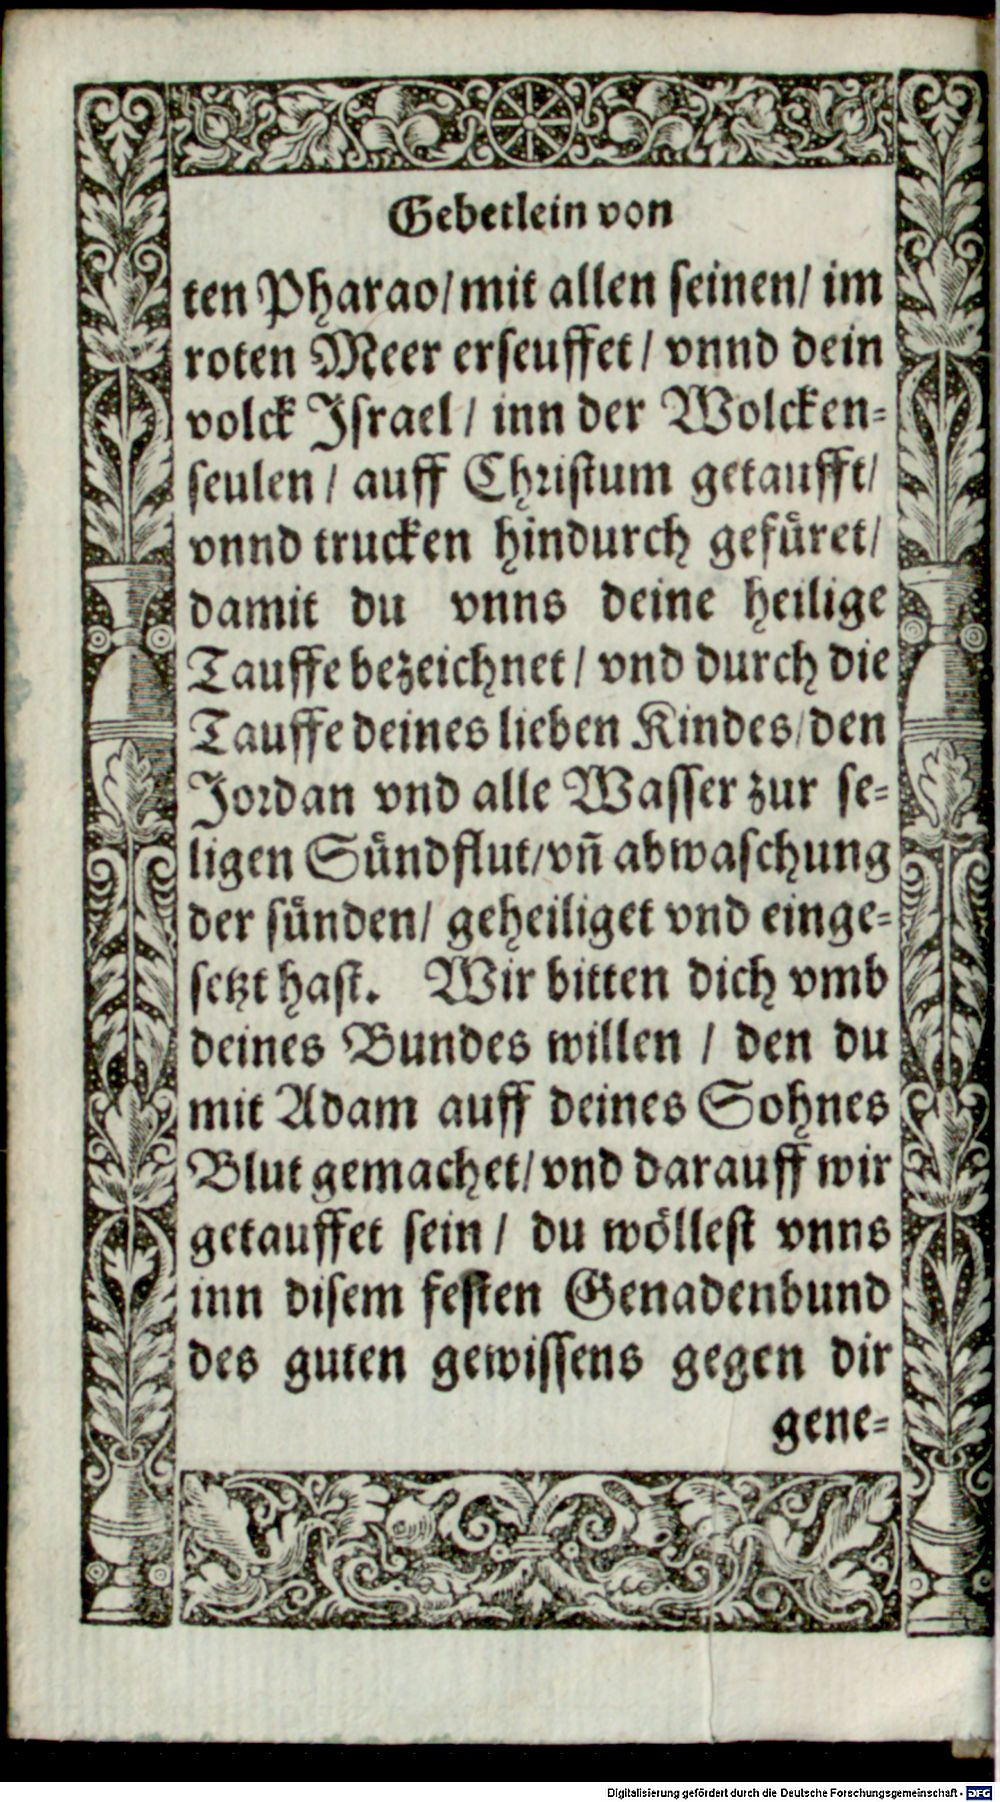 Gebetlein von
ten Pharao/ mit allen seinen/ im
roten Meer erseuffet/ vnnd dein
volck Israel/ inn der Wolcken-
seulen/ auff Christum getaufft/
vnnd trucken hindurch gefüret/
damit du vnns deine heilige
Tauffe bezeichnet/ vnd durch die
Tauffe deines lieben Kindes/ den
Jordan vnd alle Wasser zur se-
ligen Sündflut/ vñ abwaschung
der sünden/ geheiliget vnd einge-
setzt hast. Wir bitten dich vmb
deines Bundes willen / den du
mit Adam auff deines Sohnes
Blut gemachet/ vnd darauff wir
getauffet sein/ du wöllest vnns
inn disem festen Genadenbund
des guten gewissens gegen dir
gene-
Digitalisierung gefördert durch die Deutsche Forschungsgemeinschaft - DFG